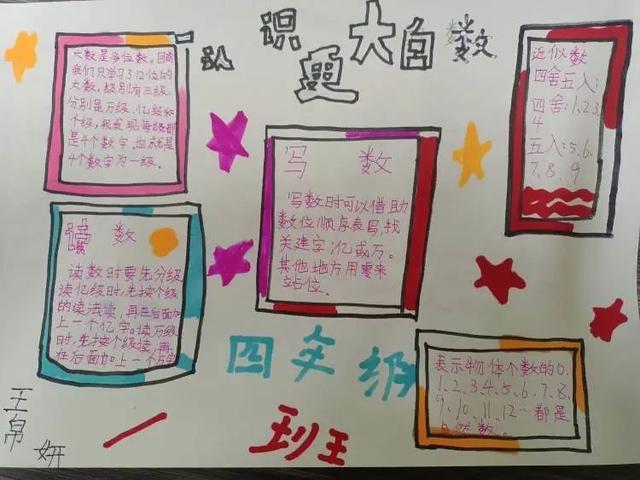 认识更大的数
大数是多位数。目前
我们只学习了12位的
大数，级别有三级，
分别是万级、亿级和
个级，我发现每级都
是4个数字，也就是
4个数字为一级。
近似数
四舍五入：
四舍：1、2、3、
4
五入：5、6、
7、8、9
写 数
写数时可以借助
数位顺序表写，找
关建字：亿或万。
其他地方用零来
站位。
读 数
读数时要先分级
读亿级时，先按个级
的读法读，再在后面加
上一个亿字。读万级
时，先按个级读，再
在后面加上一个万字
表示物体个数的0、
1、2、3、4、5、6、7、8、
9、10、11、12…都是
自然数。
四
级
一
班
王帛妍